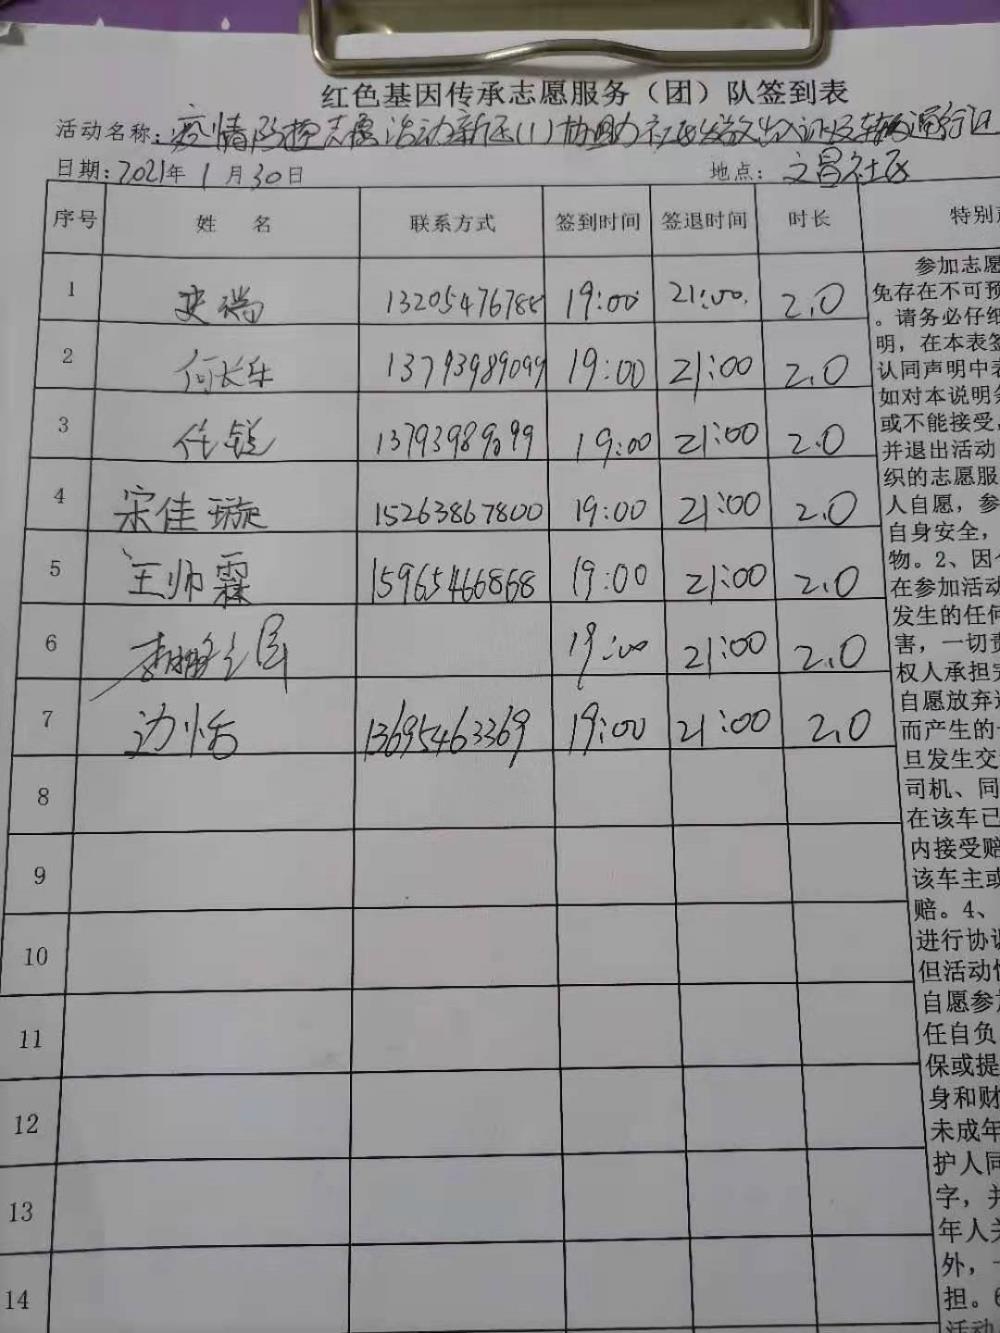 红色基因传承志愿服务（团）队签到表
活动名称：疫情防控志愿活动新区（1）协助社区发放出入证及车辆通行证
日期：2021年 1 月 30 日 地点：文昌社区
序号 姓 名 联系方式 签到时间 签退时间 时长 特别声
1 史端 13205476788 19:00 21:00 2.0
2 何长乐 13793989099 19:00 21:00 2.0
3 任锐 13793989099 19:00 21:00 2.0
4 宋佳璇 15263867800 19:00 21:00 2.0
5 王帅霖 15965466868 19:00 21:00 2.0
6 19:00 21:00 2.0
7 边恬 13695463369 19:00 21:00 2.0
8
9
10
11
12
13
14
参加志愿
免存在不可预
。请务必仔细
明，在本表签
认同声明中表
如对本说明条
或不能接受，
并退出活动
织的志愿服
人自愿，参
自身安全，
物。2、因个
在参加活动
发生的任何
害，一切责
权人承担完
自愿放弃追
而产生的一
旦发生交通
司机、同
在该车已
内接受赔
该车主或
赔。4、
进行协调
但活动性
自愿参加
任自负
保或提
身和财
未成年
护人同
字，并
年人关
外，一
担。6
活动